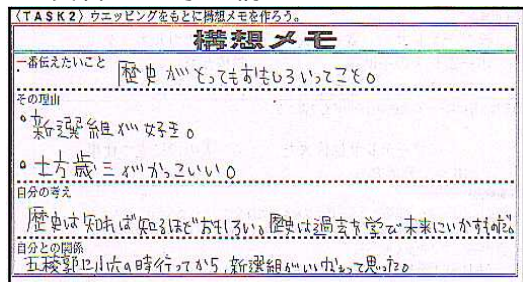 〈TASK2〉ウエッビングをもとに構想メモを作ろう。
構想メモ
一番伝えたいこと 歴史がとってもおもしろいってこと。
その理由
・新選組が好き。
・土方歳三がかっこいい。
自分の考え
歴史は知れば知るほどおもしろい。歴史は過去を学び未来にいかすものだ。
自分との関係
五稜郭に小六の時行ってから、新選組がいいなぁって思った。